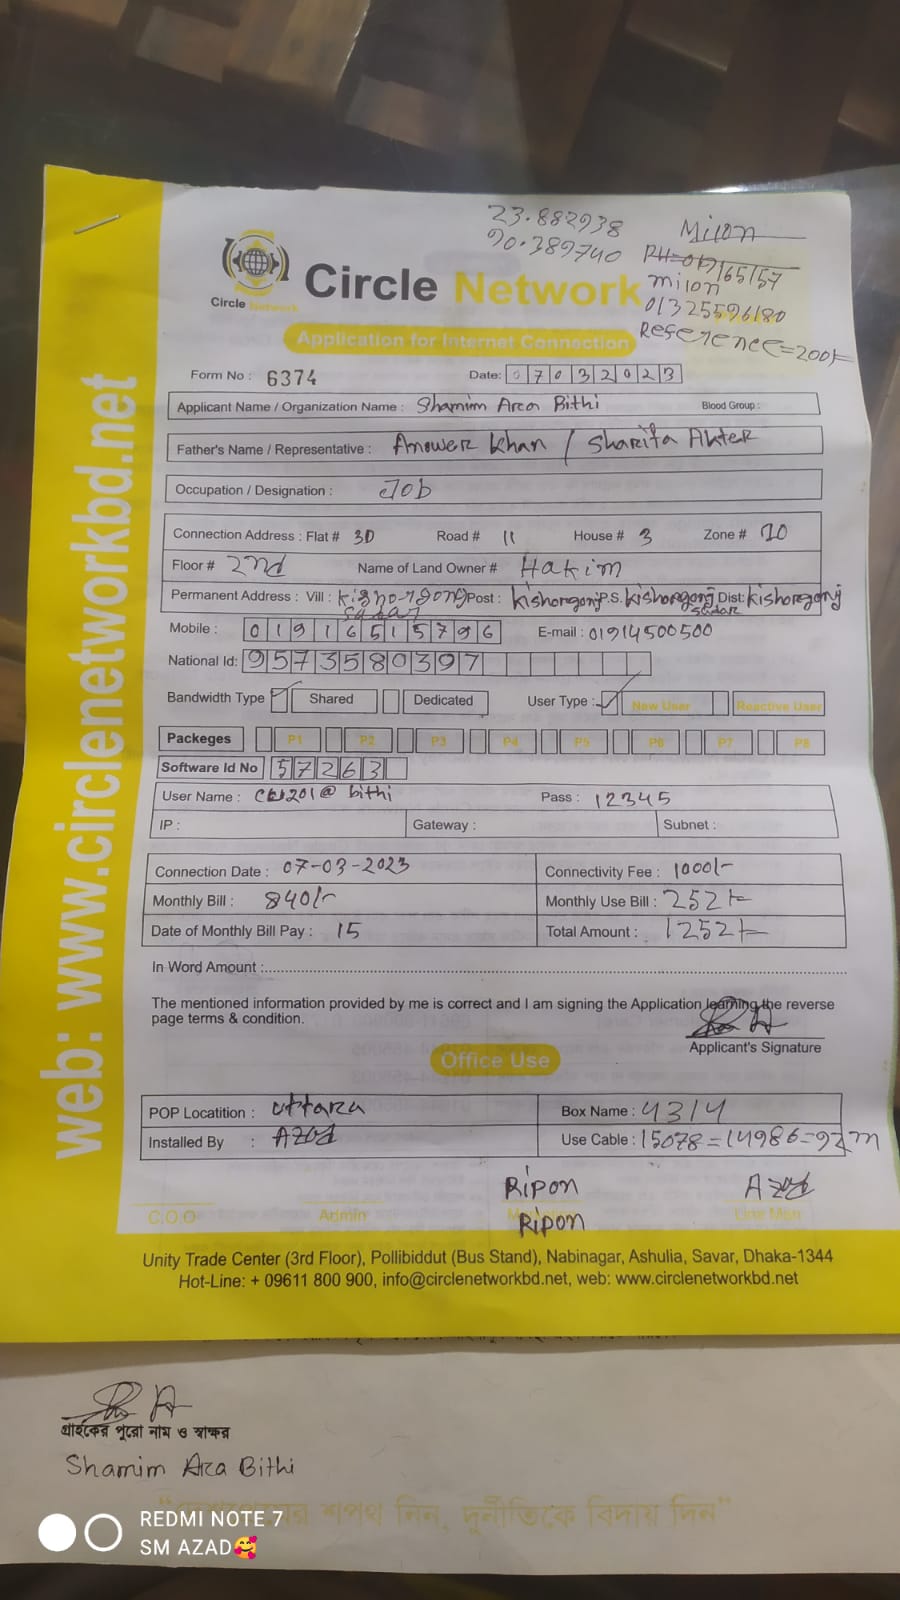 23.882938
90.389740
Milon
PH=017165157
milon
01325596180
Reference=200/-
Circle Network
Circle Network
Application for Internet Connection
Form No : 6374 Date: 07032023
Applicant Name / Organization Name : Shamim Ara Bithi Blood Group :
Father's Name / Representative : Anower Khan / Sharifa Akter
Occupation / Designation : Job
Connection Address : Flat # 3D Road # 11 House # 3 Zone # 10
Floor # 2nd Name of Land Owner # Hakim
Permanent Address : Vill : Kishorgong Sadar Post : Kishorgonj P.S. Kishorgong Sadar Dist: Kishorgonj
Mobile : 01916515796 E-mail : 01914500500
National Id: 9573580397
Bandwidth Type Shared Dedicated User Type : New User Reactive User
Packeges P1 P2 P3 P4 P5 P6 P7 P8
Software Id No 57263
User Name : @ bithi Pass : 12345
IP : Gateway : Subnet :
Connection Date : 07-03-2023 Connectivity Fee : 1000/-
Monthly Bill : 840/- Monthly Use Bill : 252/-
Date of Monthly Bill Pay : 15 Total Amount : 1252/-
In Word Amount :
The mentioned information provided by me is correct and I am signing the Application learning the reverse
page terms & condition.
Applicant's Signature
Office Use
POP Locatition : uttara Box Name : 4314
Installed By : Azad Use Cable : 15078=14986=92m
Ripon Azad
C.O.O Admin Ripon Line Man
Unity Trade Center (3rd Floor), Pollibiddut (Bus Stand), Nabinagar, Ashulia, Savar, Dhaka-1344
Hot-Line: + 09611 800 900, info@circlenetworkbd.net, web: www.circlenetworkbd.net
web: www.circlenetworkbd.net
গ্রাহকের পুরো নাম ও স্বাক্ষর
Shamim Ara Bithi
শপথ নিন, দুর্নীতিকে বিদায় দিন"
REDMI NOTE 7
SM AZAD🥰